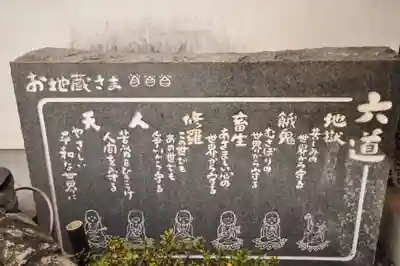 六道
お地蔵さま
地獄
苦しみの
世界から守る
餓鬼
むさぼりの
世界から守る
畜生
あさましい心の
世界から守る
修羅
この世でも
あの世でも
争いから守る
人
苦労を
人間を守る
天
やさしい
平和な世界に